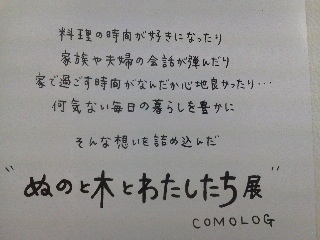 料理の時間が好きになったり
家族や夫婦の会話が弾んだり
家で過ごす時間がなんだか心地良かったり…
何気ない毎日の暮らしを豊かに
そんな想いを詰め込んだ
"ぬのと木とわたしたち展"
COMOLOG